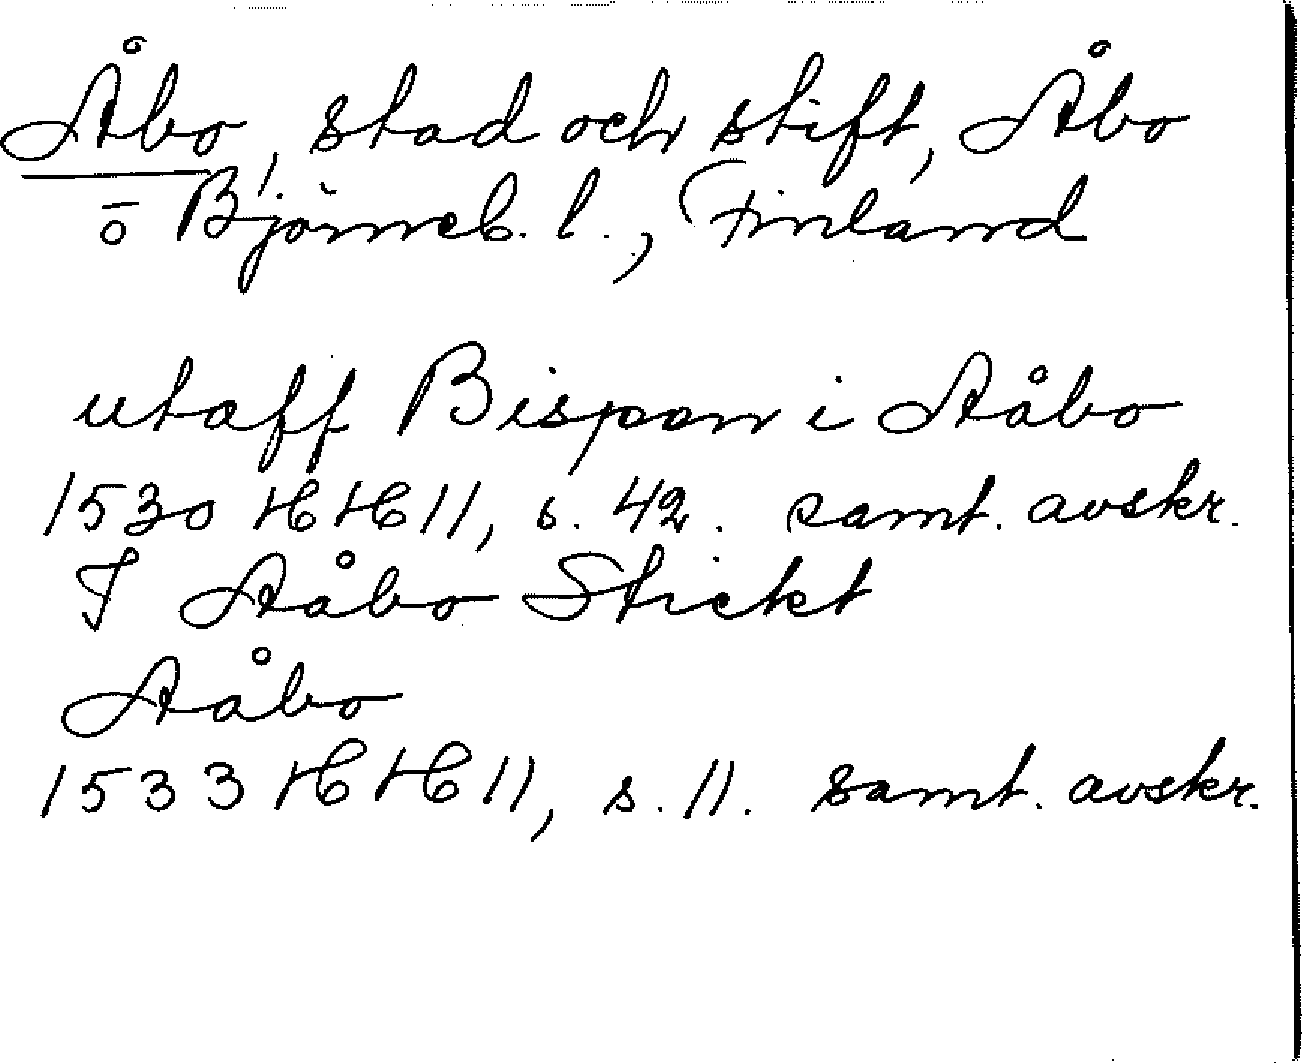 Åbo, stad och stift, Åbo
o Björneb. l., Finland
utaff Bispon i Aåbo
1530 HH 11, s. 42. samt. avskr.
I Aåbo Stickt
Aåbo
1533 HH 11, s. 11. samt. avskr.